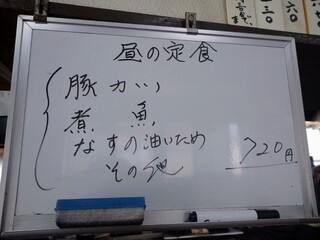 昼の定食
豚カツ
煮魚
なすの油いため
その他
720円